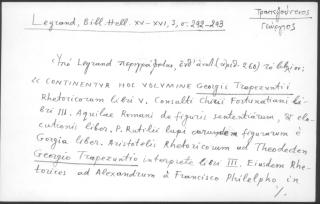 Legrand, Bibl. Hell. XV-XVI, 3, σ. 242-243
Τραπεζούντιος
Γεώργιος
Ὑπὸ Legrand περιγράφεται, ἐνθ' ἀνωτ. (ἀριθ. 260) τὸ βιβλίον:
« CONTINENTUR HOC VOLUMINE Georgii Trapezuntii
Rhetoricorum libri V. Consulti Chirii Fortunatiani li-
bri III. Aquilae Romani de figuris sententiarum, & elo-
cutionis liber. P. Rutilii Lupi earundem figurarum è
Gorgia liber. Aristotelis Rhetoricorum ad Theodecten
Georgio Trapezuntio interprete libri III. Eiusdem Rhe-
torices ad Alexandrum à Francisco Philelpho in
./.